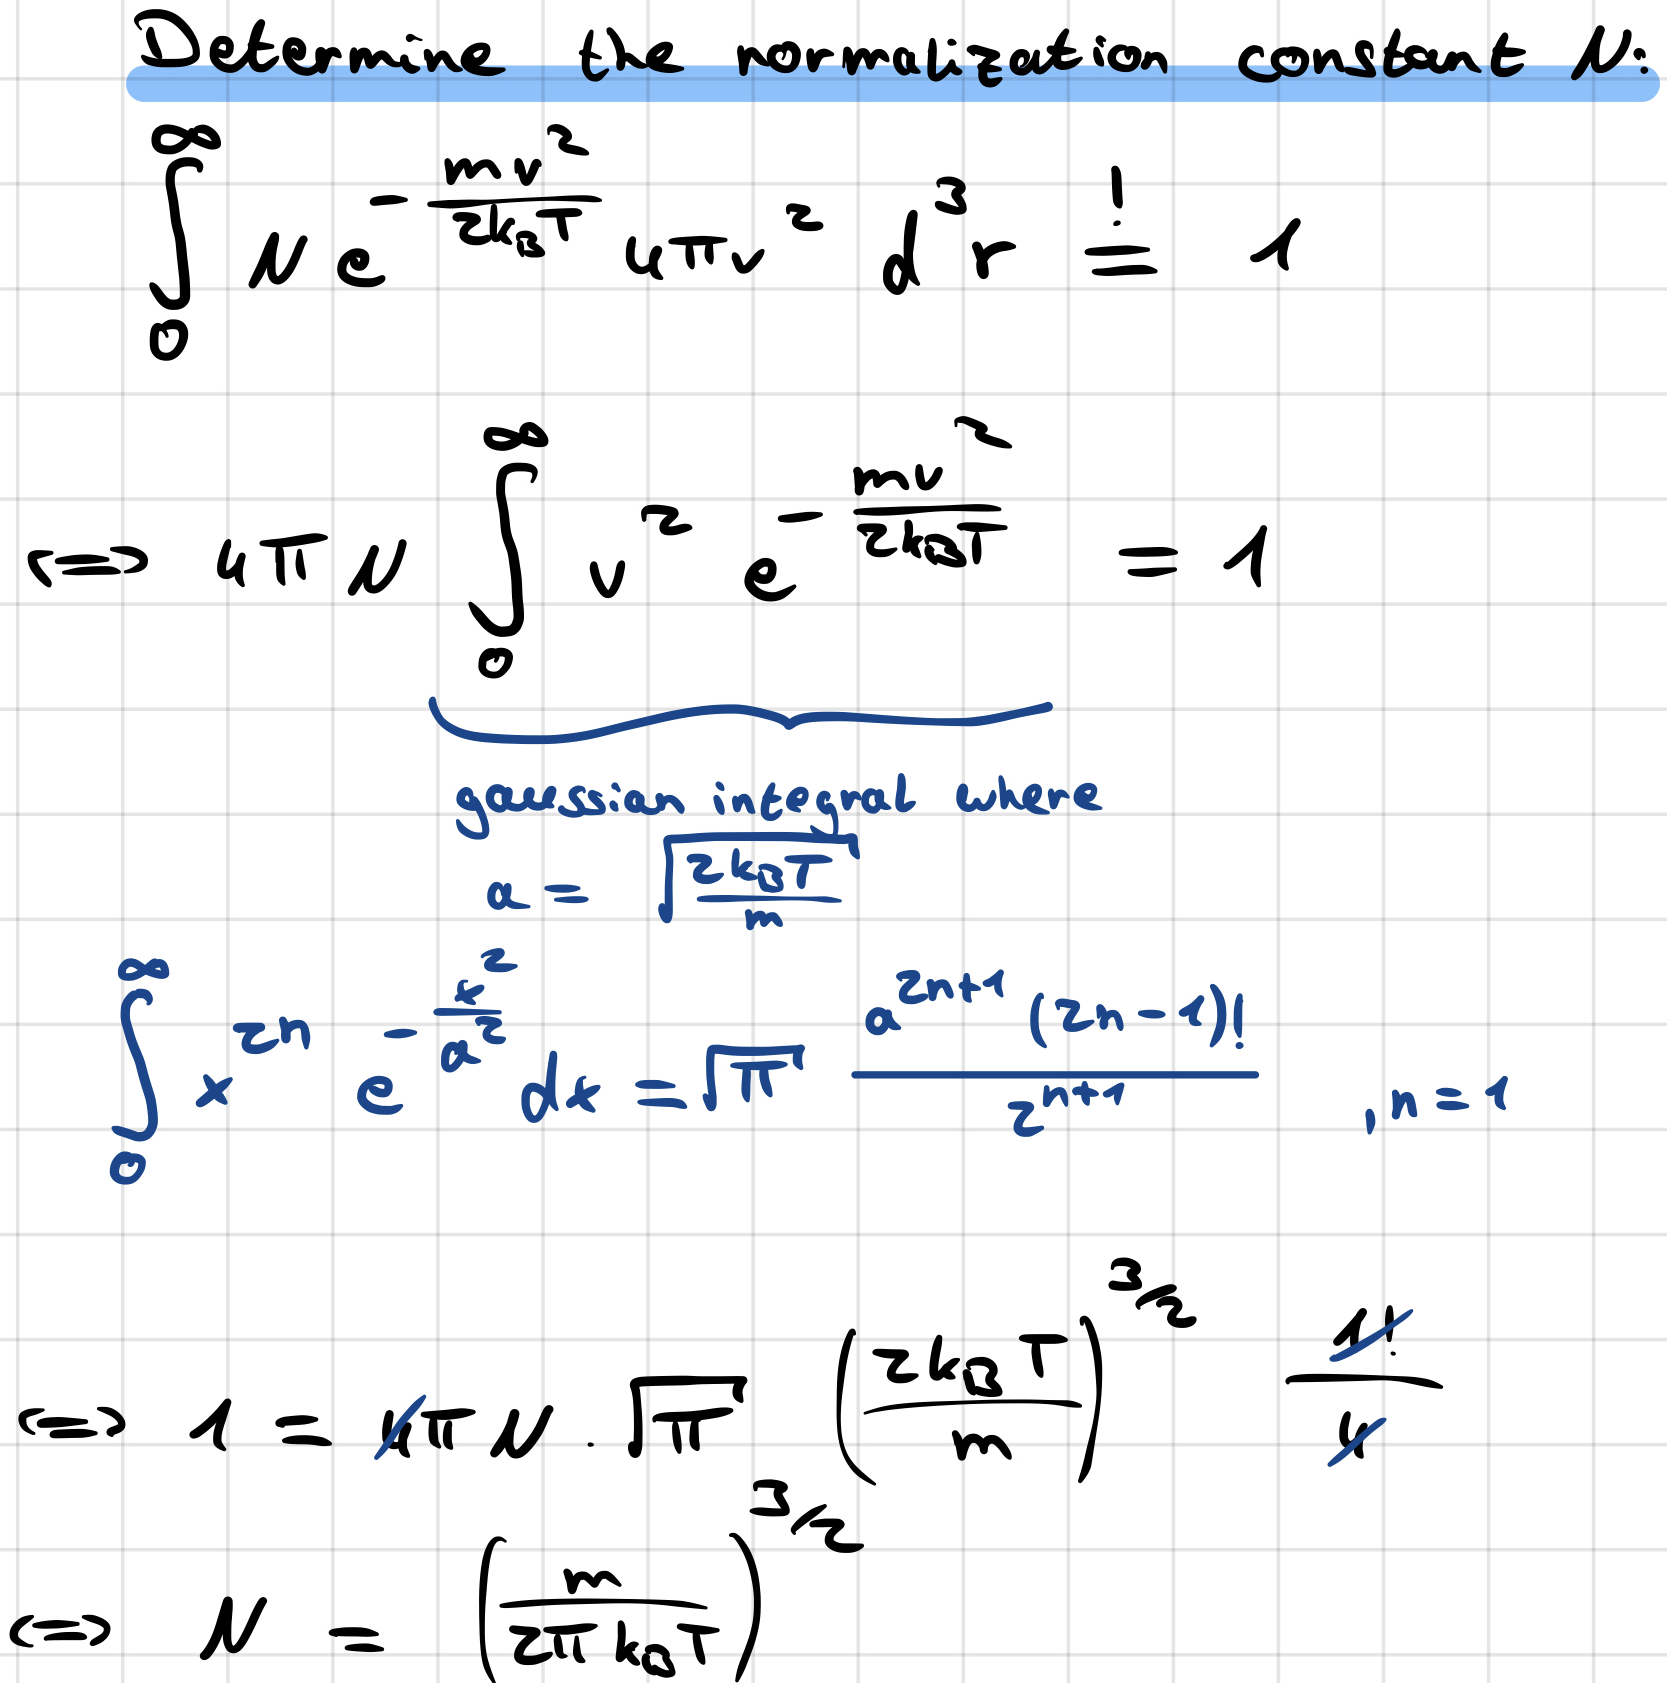 Determine the normalization constant N:
∫₀^∞ N e^{-\frac{mv²}{2k_BT}} 4πv² d³r \overset{!}{=} 1
<=> 4πN ∫₀^∞ v² e^{-\frac{mv²}{2k_BT}} = 1
gaussian integral where
a = \sqrt{\frac{2k_BT}{m}}
∫₀^∞ x^{2n} e^{-\frac{x²}{a²}} dx = \sqrt{π} \frac{a^{2n+1} (2n-1)!}{2^{n+1}} , n = 1
<=> 1 = 4πN · \sqrt{π} (\frac{2k_BT}{m})^{3/2} \frac{1!}{4}
<=> N = (\frac{m}{2πk_BT})^{3/2}